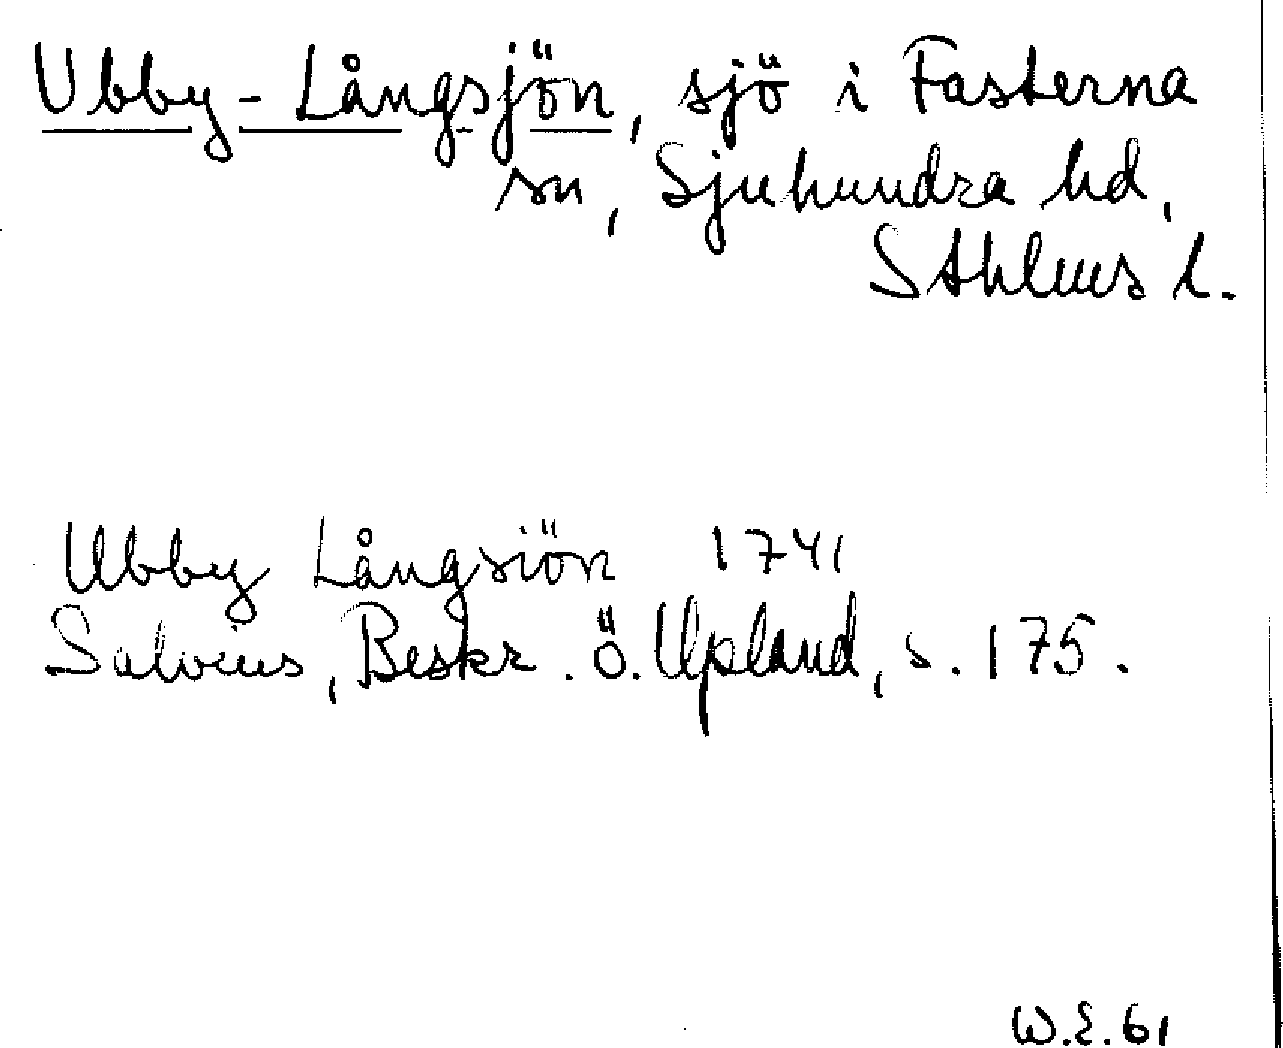 Ubby-Långsjön, sjö i Fasterna
sn, Sjuhundra hd,
Sthlms l.
Ubby Långsiön 1741
Salvius, Beskr. Ö. Upland, s. 175.
W.E. 61